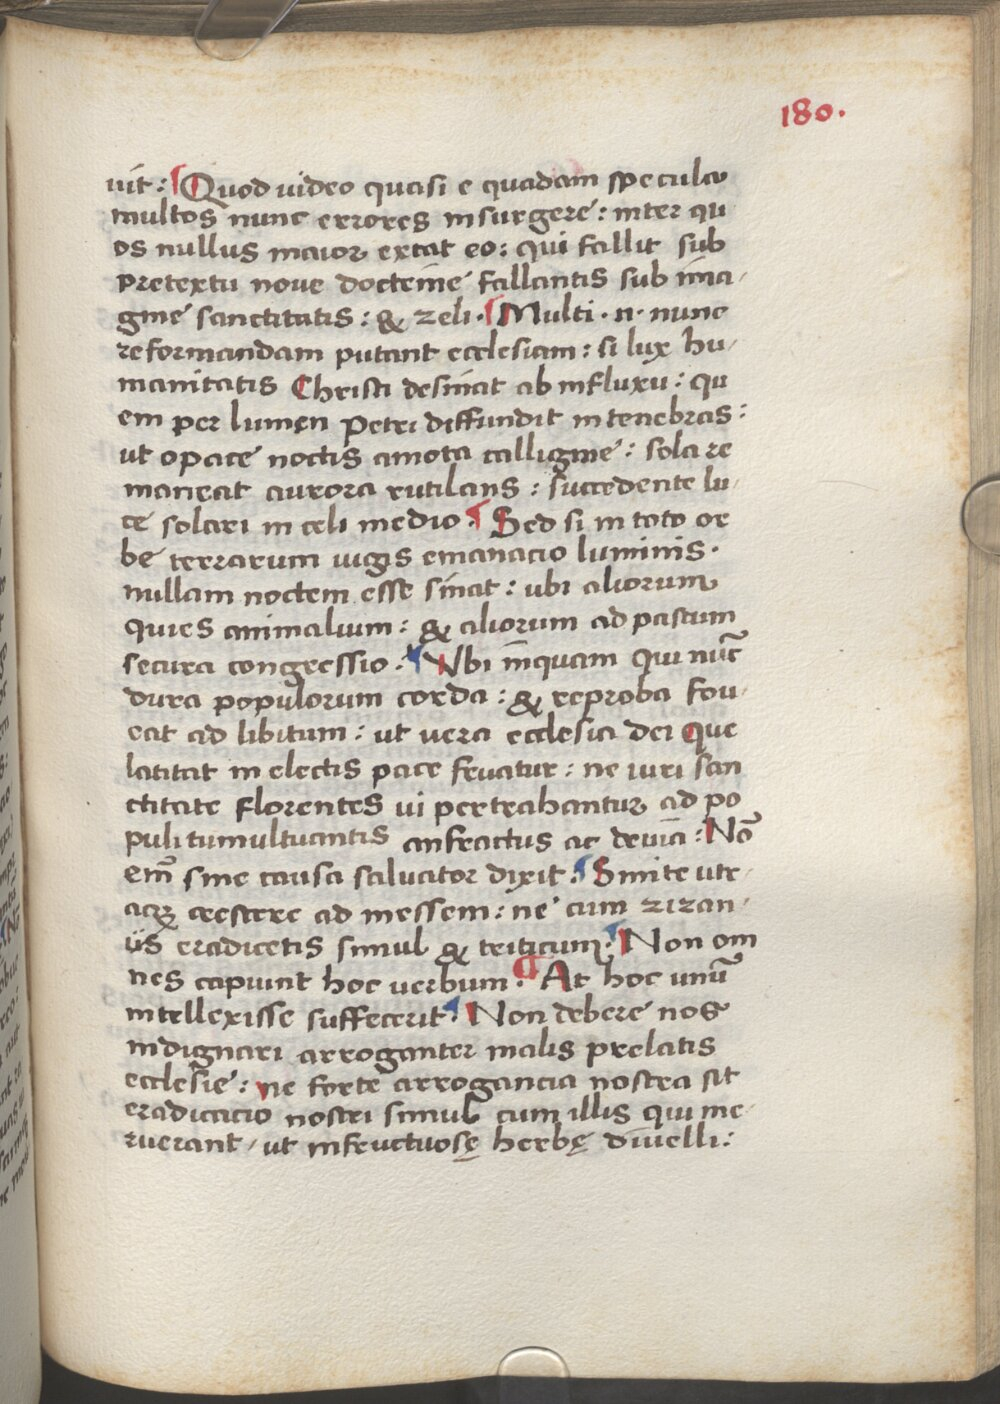 180.
uit: ¶ Quod uideo quasi e quadam specula
multos nunc errores insurgere: inter qu
os nullus maior extat eo: qui fallit sub
pretextu noue doctrine fallantis sub ima-
gine sanctitatis: & zeli. ¶ Multi .n. nunc
reformandam putant ecclesiam: si lux hu-
manitatis Christi desinat ab influxu: qu
em per lumen Petri diffundit in tenebras:
ut opace noctis amota calligine: sola re
maneat aurora rutilans: succedente lu-
ce solari in celi medio. ¶ Sed si in toto or
be terrarum iugis emanacio luminis.
nullam noctem esse sinat: ubi aliorum
quies animalium: & aliorum ad pastum
secura congressio. ¶ Vbi inquam qui nūc
dura populorum corda: & reproba fou-
eat ad libitum: ut uera ecclesia dei que
latitat in electis pace fruatur: ne iuri san
ctitate florentes ui pertrahantur ad po
puli tumultuantis anfractus ac deuia: Nō
em̄ sine causa saluator dixit: ¶ Sinite utr-
acq crescere ad messem: ne cum zizan-
iis eradicetis simul & triticum. ¶ Non om
nes capiunt hoc uerbum. ¶ At hoc unū
intellexisse suffecerit ¶ Non debere nos
indignari arroganter malis prelatis
ecclesie: ne forte arrogancia nostra sit
eradicacio nostri simul cum illis qui me-
ruerant, ut infructuosę herbę diuelli: